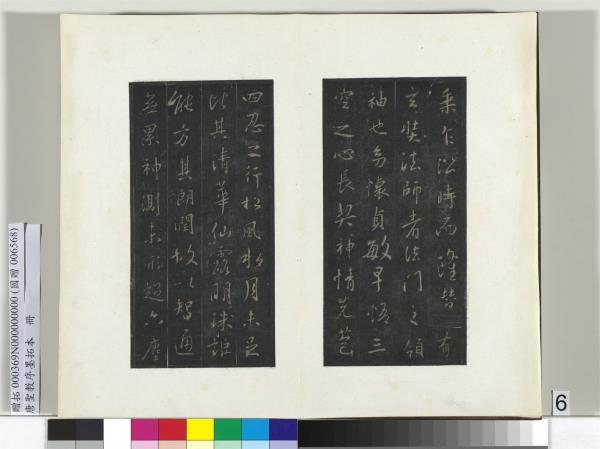 乘乍沿時而隆替有
玄奘法師者法門之領
袖也幼懷貞敏早悟三
空之心長契神情先苞
四忍之行松風水月未足
比其清華仙露明珠詎
能方其朗潤故以智通
無累神測未形超六塵
贈拓 000369N000000000 (國贈 006568)
唐聖教序墨拓本 冊
6